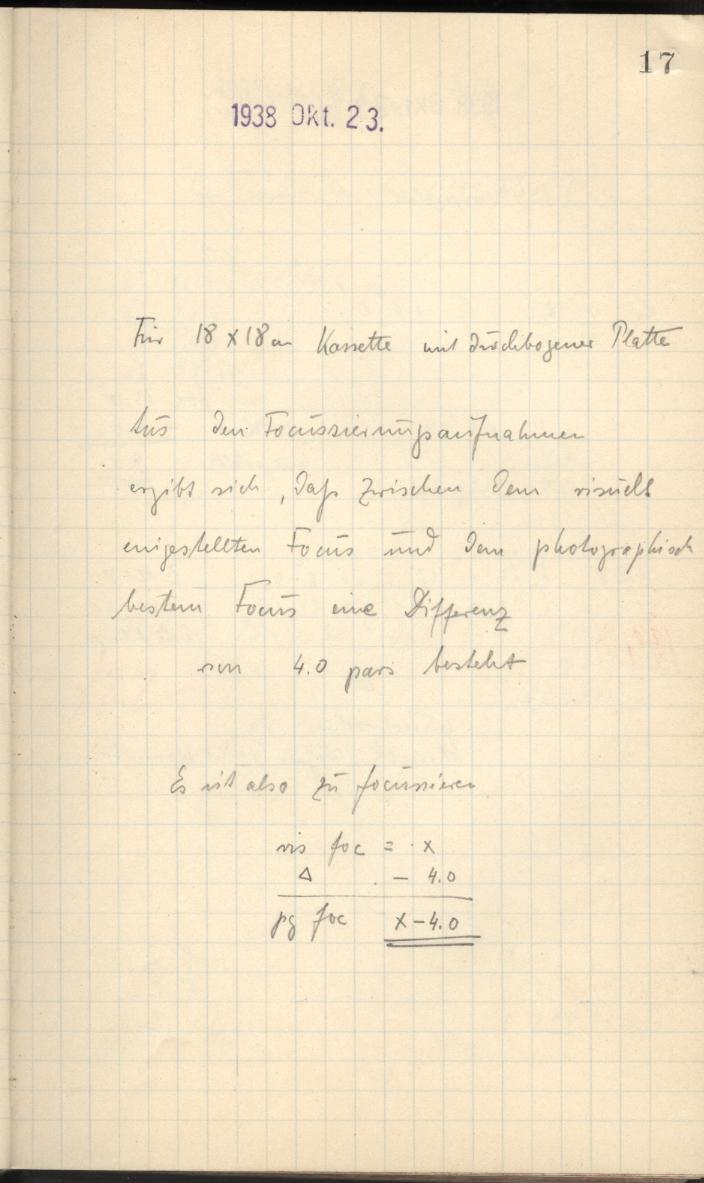 17
1938 Okt. 23.
Für 18 X 18 cm Kassette mit durchbogener Platte
Aus den Focussierungsaufnahmen
ergibt sich, daß zwischen dem visuell
eingestellten Focus und dem photographisch
bestem Focus eine Differenz
von 4.0 pars besteht
Es ist also zu focussieren
vis foc = x
Δ - 4.0
pg foc x - 4.0